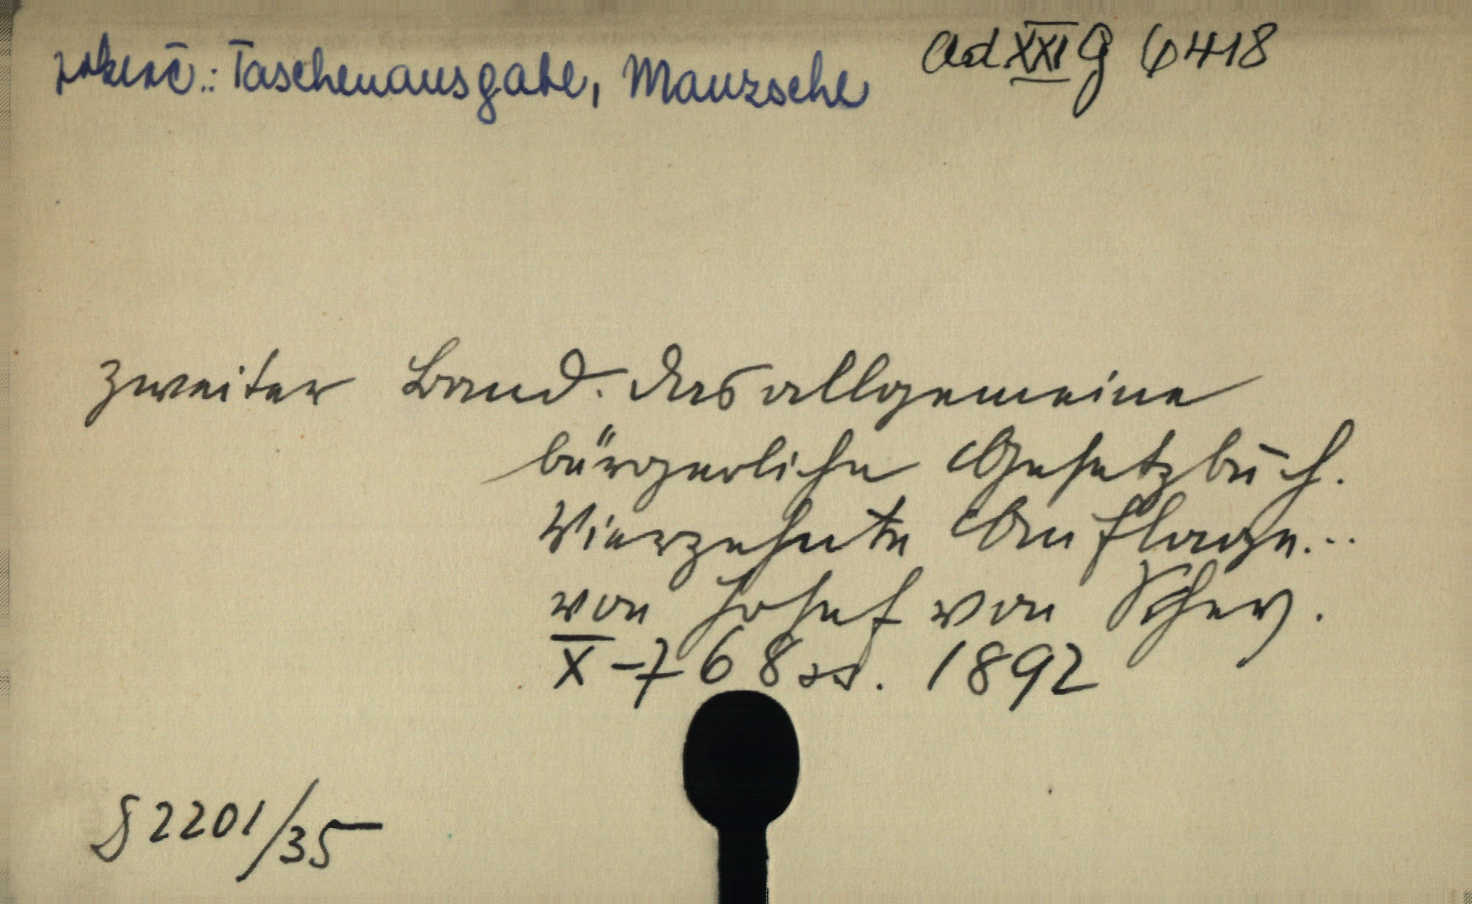 pokrač.: Taschenausgabe, Manzsche
ad XXI G 6418
Zweiter Band. Das allgemeine
bürgerliche Gesetzbuch.
Vierzehnte Auflage...
von Josef von Schey.
X-768 ss. 1892
§ 2201/35